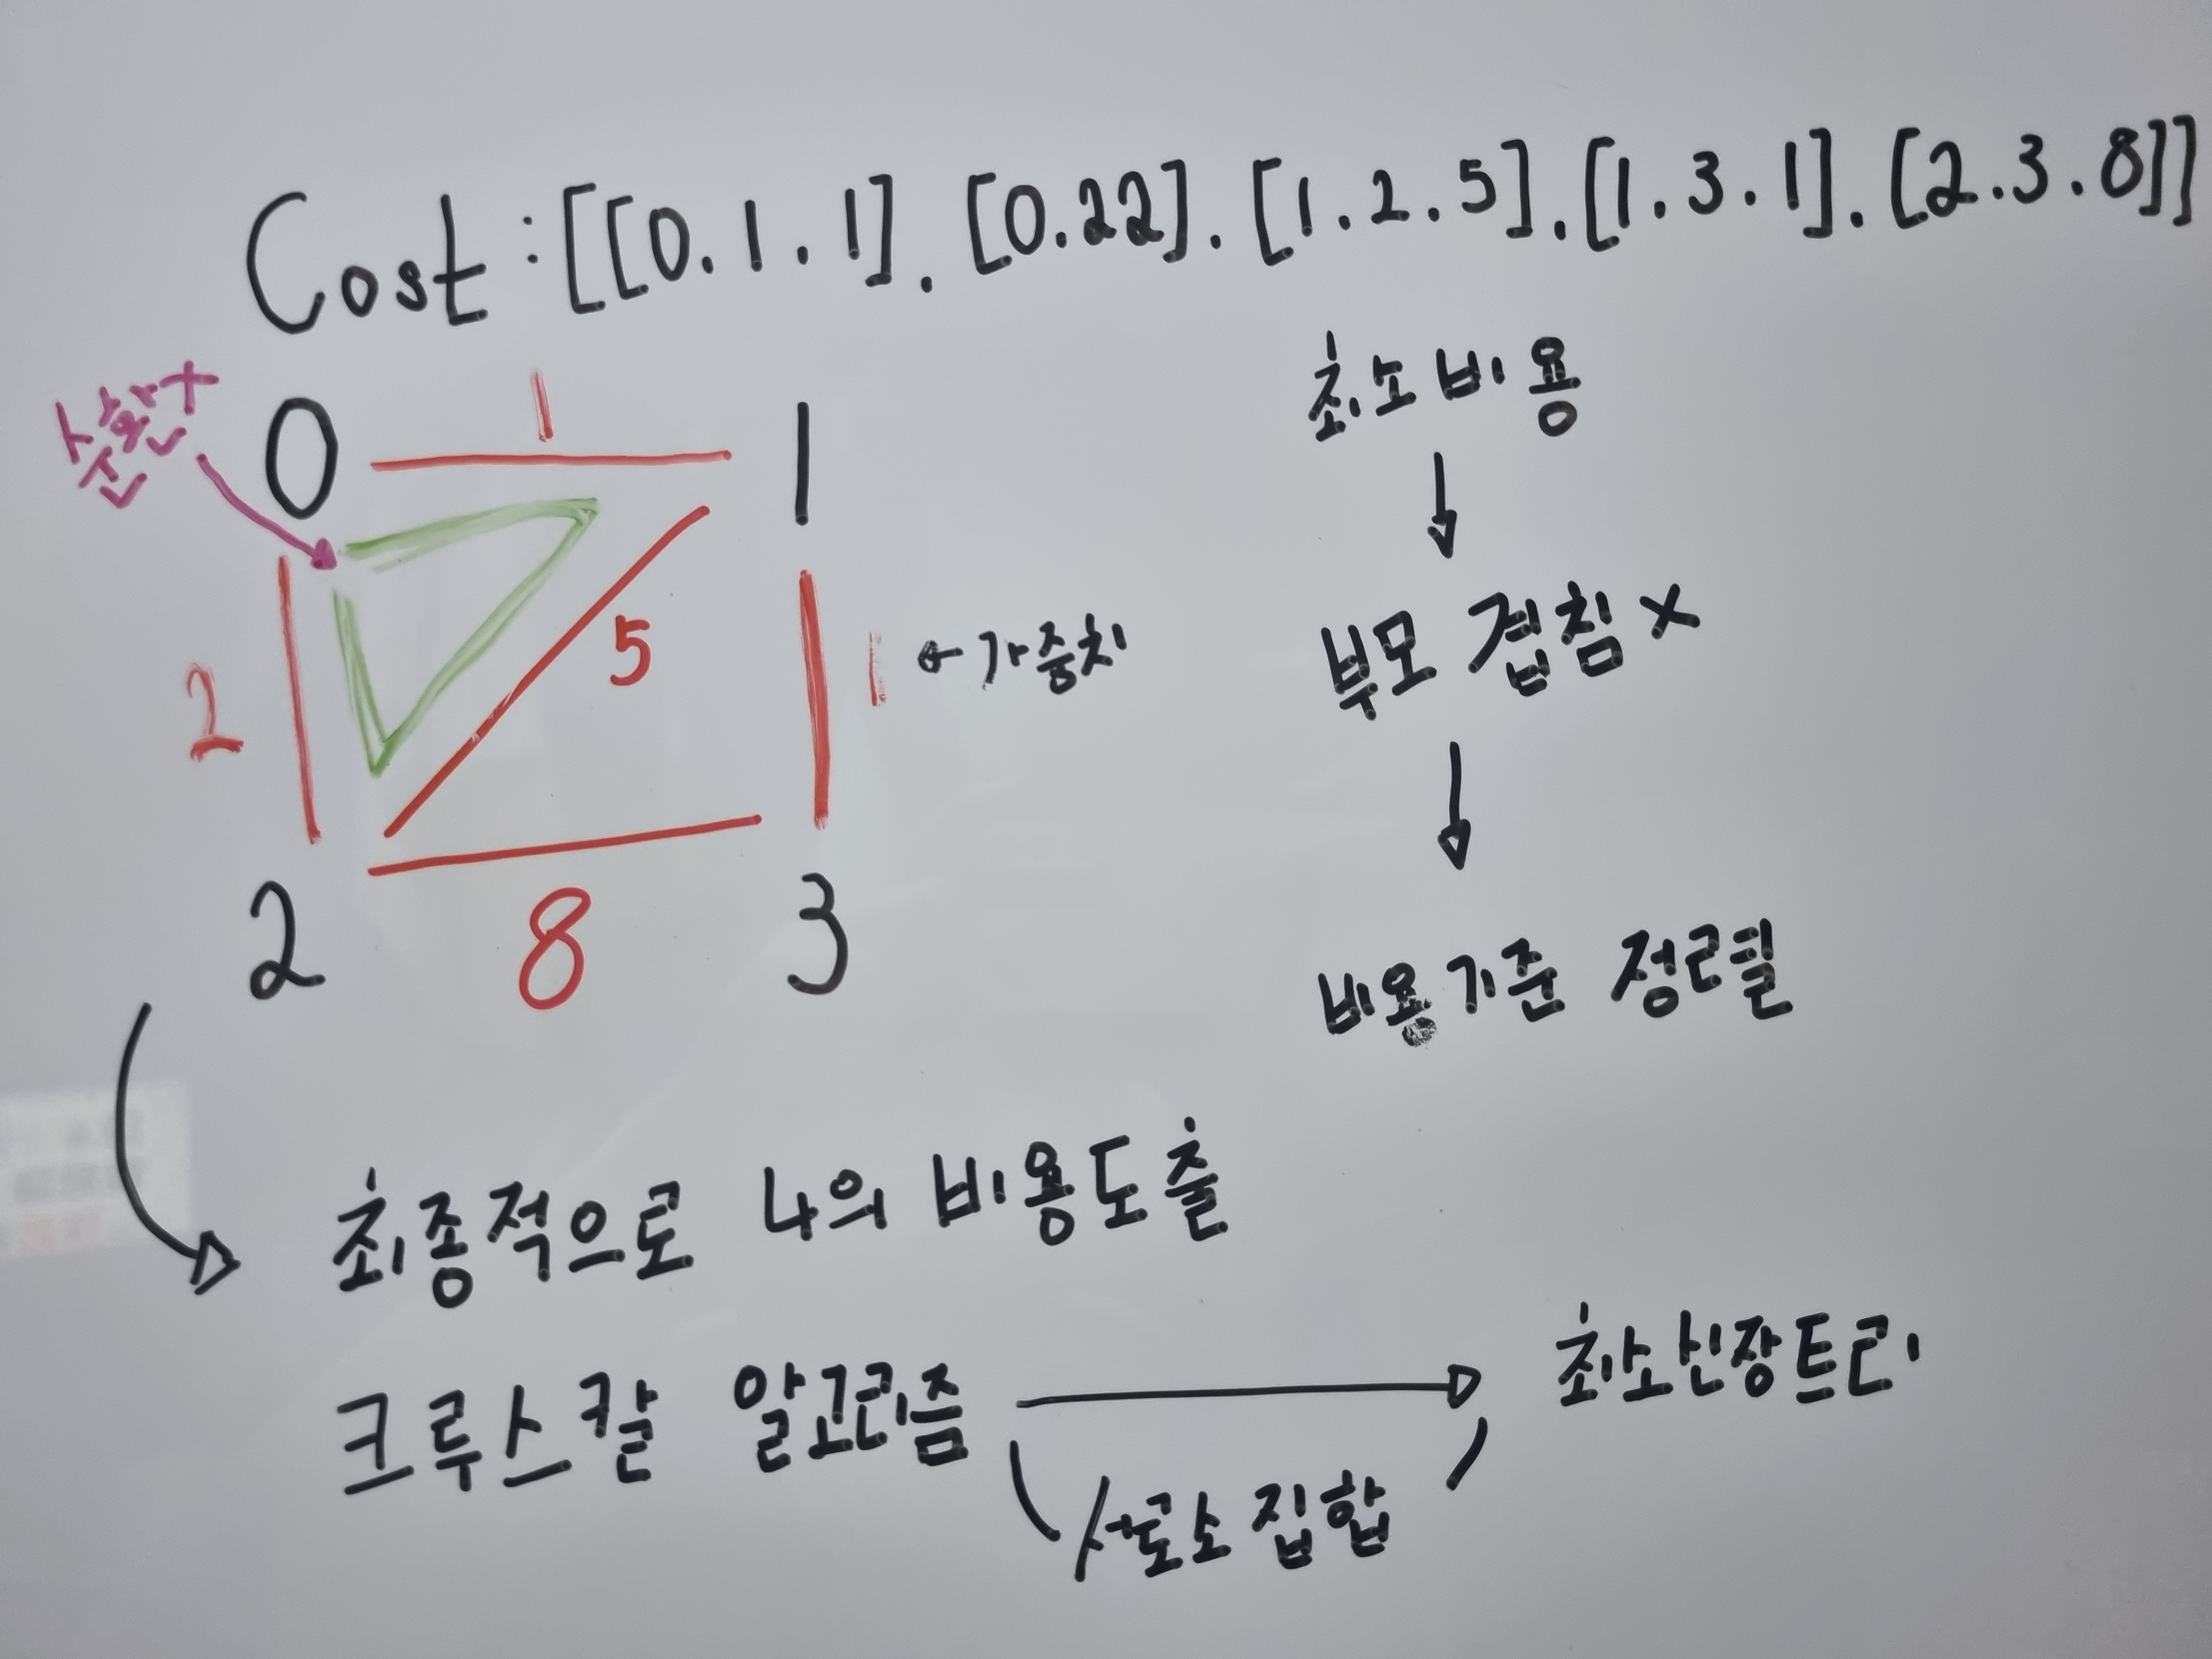 Cost : [[0.1.1]. [0.22]. [1.2.5]. [1.3.1]. [2.3.8]]
순환 X
0 1 1
2 5 1 ← 가중치
2 8 3
최소 비용
부모 겹침 X
비용 기준 정렬
최종적으로 4의 비용 도출
크루스칼 알고리즘
최소신장트리
서로소 집합